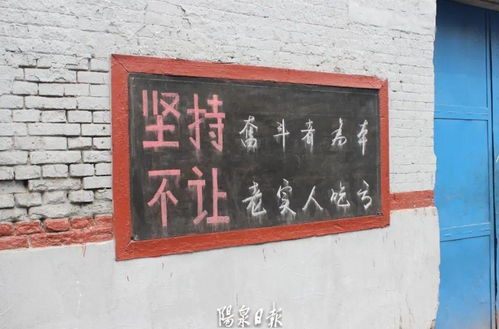 坚持 奋斗者为本
不让 老实人吃亏
陽泉日報